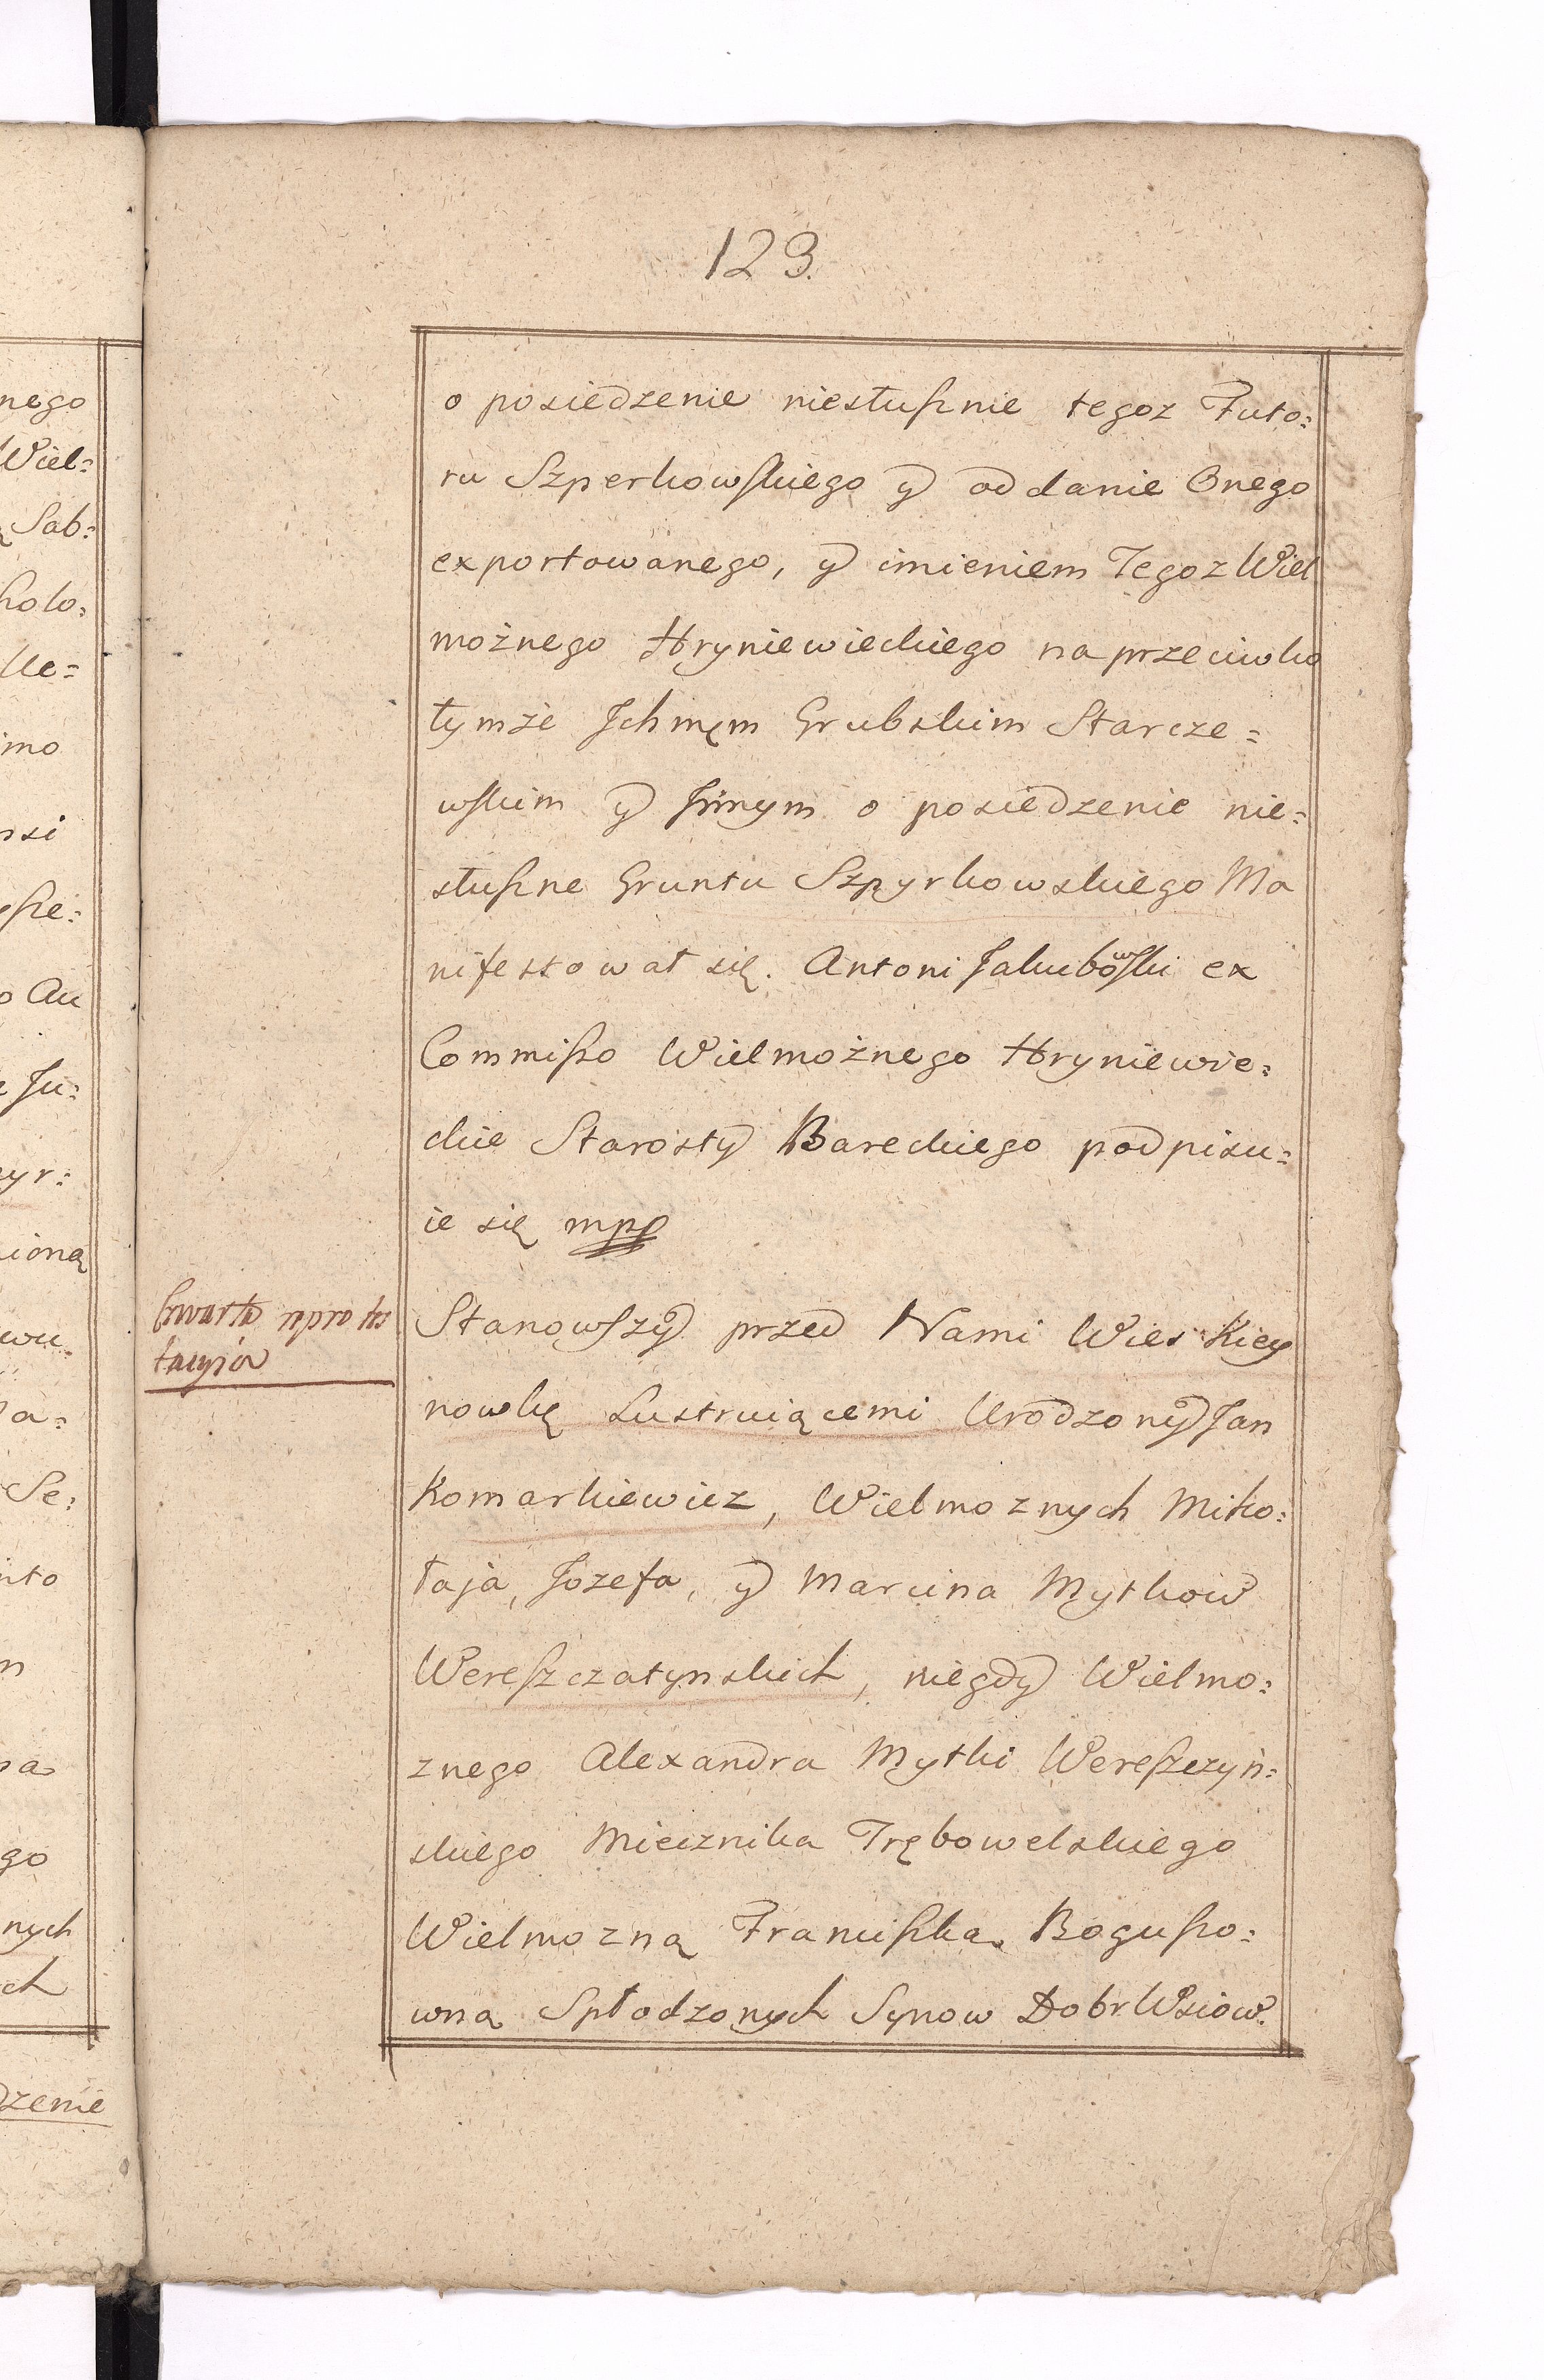 123.
o posiedzenie niesłuſznie tegoz Futo=
ru Szperkowſkiego y oddanie Onego
exportowanego, y imieniem Tegoz Wiel
możnego Hryniewieckiego naprzeciwko
tymże Ichmęm Grubskim Starcze=
wſkim y Jnnym o posiedzenie nie=
słuſzne Gruntu Szpyrkowskiego Ma
nifestował się. Antoni Jakubowſki ex
Commiſso Wielmożnego Hryniewie=
ckie Starosty Bareckiego podpisu=
ie się mpp
Czwarta
Stanowſzy przed Nami Wieś Kiey
nowkę Lustruiącemi Urodzony Jan
Komarkiewicz, Wielmoznych Miko=
łaja, Jozefa, y Marcina Mytkow
Wereſzczatynskich, niegdy Wielmo=
znego Alexandra Mytki Wereſzczyń=
skiego Miecznika Trębowelskiego
Wielmozną Franciſzka Boguſzo=
wną Spłodzonych Synow Dobr Wsiow.
nego
Wiel=
Sab=
imo
o Au
Se=
ego
nych
dzenie